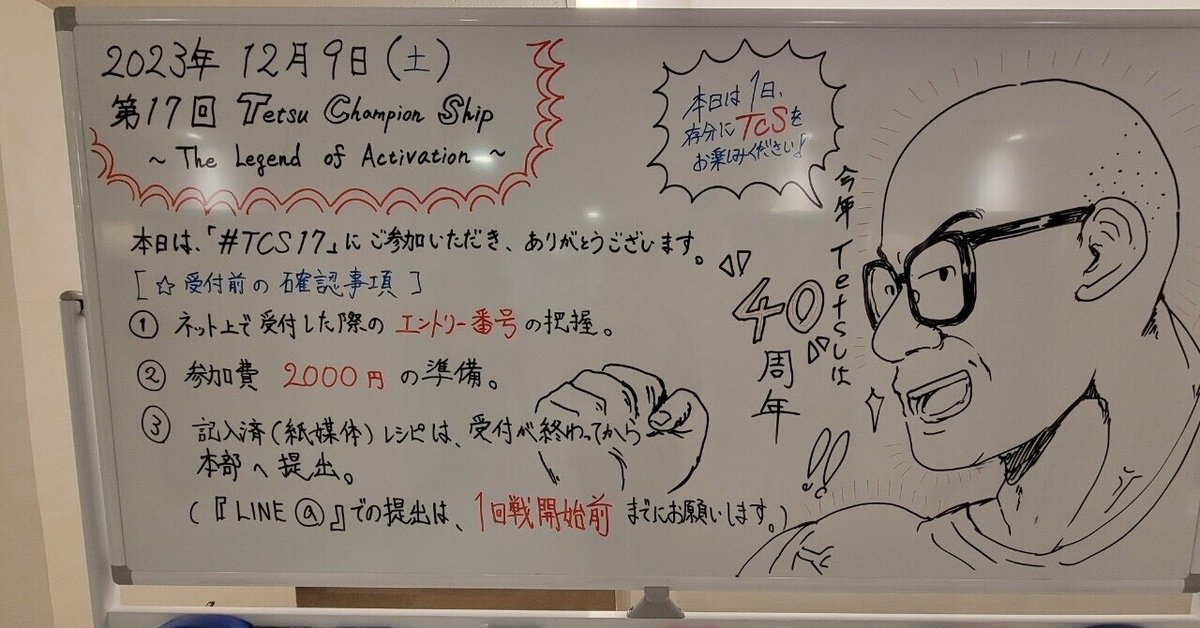 2023年 12月9日(土)
第17回 Tetsu Champion Ship
~ The Legend of Activation ~
本日は、「#TCS17」にご参加いただき、ありがとうございます。
[☆受付前の確認事項]
① ネット上で受付した際のエントリー番号の把握。
② 参加費 2000円の準備。
③ 記入済(紙媒体)レシピは、受付が終わってから
本部へ提出。
(『LINE@』での提出は、1回戦開始前までにお願いします。)
本日は1日、
存分にTCSを
お楽しみください♪
今年Tetsuは
40
周年
!!